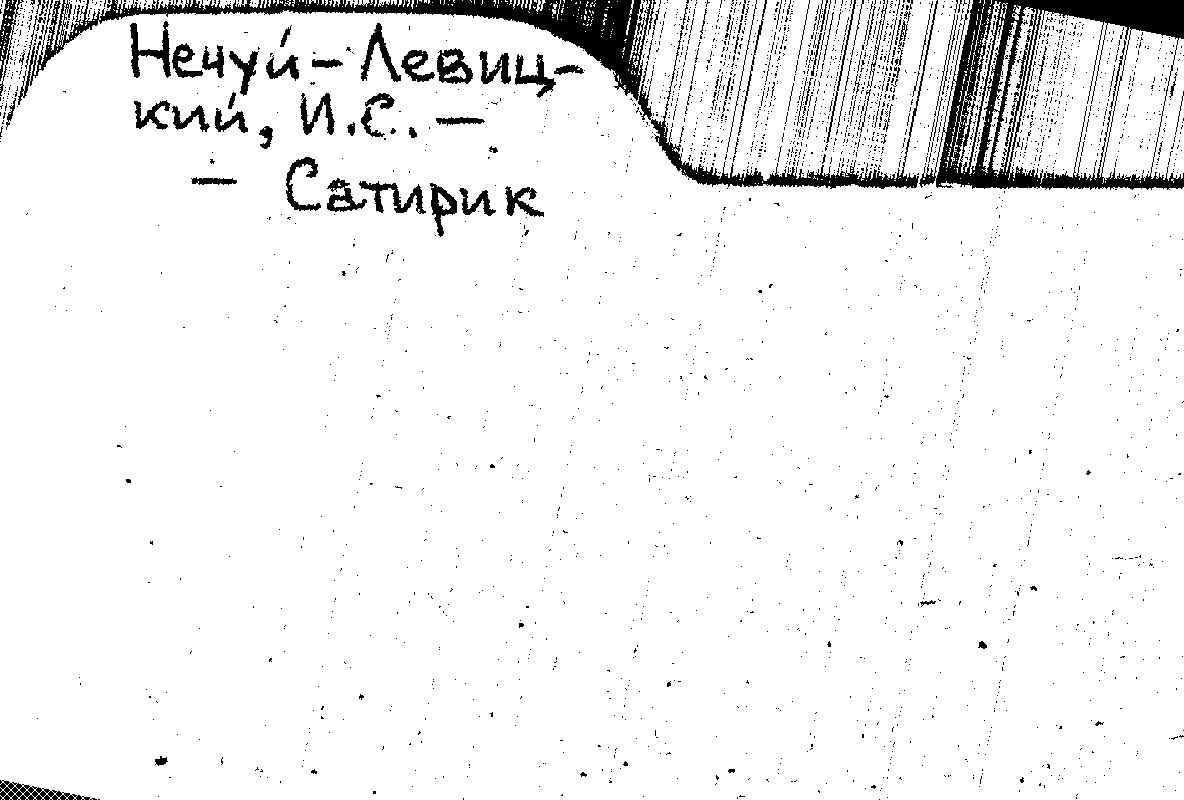 Нечуй-Левиц-
кий, И.С. —
— Сатирик